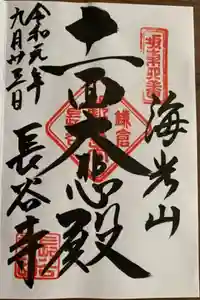 坂東四番
海光山
十一面大悲殿
鎌倉
長谷寺
令和元年
九月廿三日